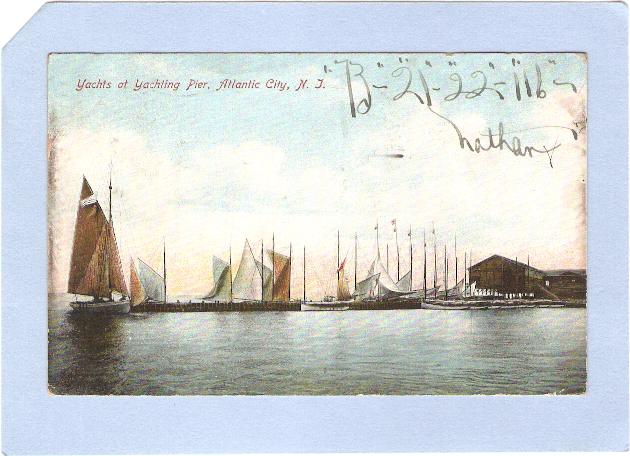 Yachts at Yachting Pier, Atlantic City, N. J.
"B"-"21"-"22"-"116"-
Nathan